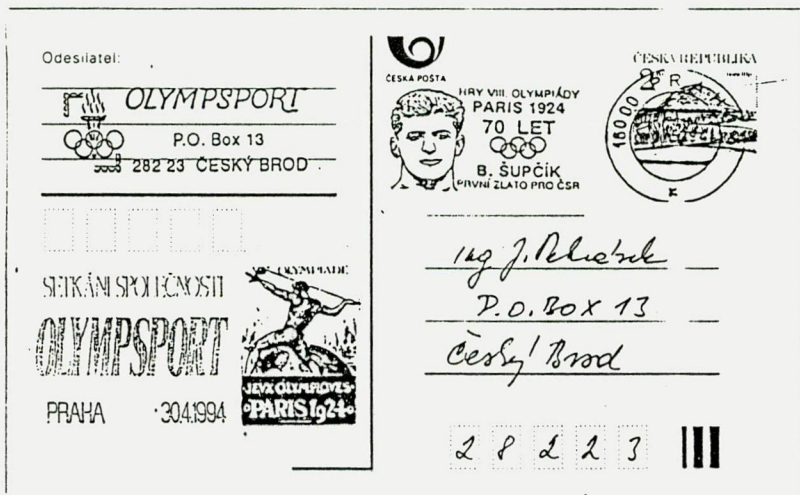 Odesílatel:
OLYMPSPORT
P.O. Box 13
282 23 ČESKÝ BROD
SETKÁNÍ SPOLEČNOSTI
OLYMPSPORT
PRAHA 30.4.1994
OLYMPIADE
JEUX OLYMPIQUES
PARIS 1924
ČESKÁ POŠTA
HRY VIII. OLYMPIÁDY
PARIS 1924
70 LET
B. ŠUPČÍK
PRVNÍ ZLATO PRO ČSR
ČESKÁ REPUBLIKA
R
160 00
K
ing J.
P.O. BOX 13
Český Brod
2 8 2 2 3